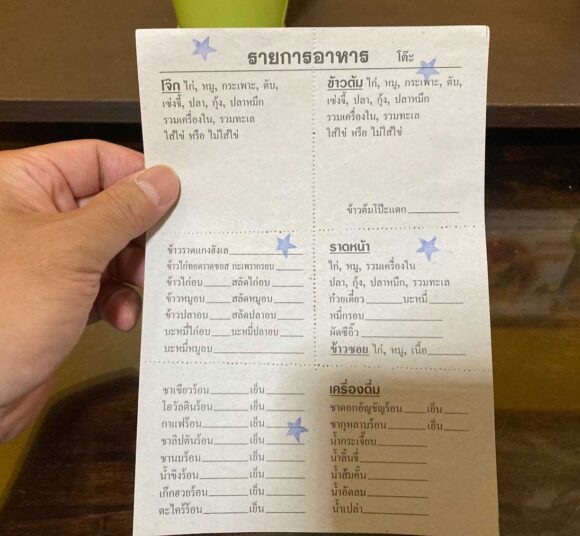 รายการอาหาร โต๊ะ
โจ๊ก ไก่, หมู, กระเพาะ, ตับ,
เซ่งจี้, ปลา, กุ้ง, ปลาหมึก
รวมเครื่องใน, รวมทะเล
ใส่ไข่ หรือ ไม่ใส่ไข่
ข้าวต้ม ไก่, หมู, กระเพาะ, ตับ,
เซ่งจี้, ปลา, กุ้ง, ปลาหมึก
รวมเครื่องใน, รวมทะเล
ใส่ไข่ หรือ ไม่ใส่ไข่
ข้าวต้มโป๊ะแตก
ข้าวราดแกงฮังเล
ข้าวไก่ทอดราดซอส กะเพรากรอบ
ข้าวไก่อบ สลัดไก่อบ
ข้าวหมูอบ สลัดหมูอบ
ข้าวปลาอบ สลัดปลาอบ
บะหมี่ไก่อบ บะหมี่ปลาอบ
บะหมี่หมูอบ
ราดหน้า
ไก่, หมู, รวมเครื่องใน
ปลา, กุ้ง, ปลาหมึก, รวมทะเล
ก๋วยเตี๋ยว บะหมี่
หมี่กรอบ
ผัดซีอิ๊ว
ข้าวซอย ไก่, หมู, เนื้อ
ชาเขียวร้อน เย็น
โอวัลตินร้อน เย็น
กาแฟร้อน เย็น
ชาลิปตันร้อน เย็น
ชานมร้อน เย็น
น้ำขิงร้อน เย็น
เก็กฮวยร้อน เย็น
ตะไคร้ร้อน เย็น
เครื่องดื่ม
ชาดอกอัญชัญร้อน เย็น
ชากุหลาบร้อน เย็น
น้ำกระเจี๊ยบ
น้ำลิ้นจี่
น้ำส้มคั้น
น้ำอัดลม
น้ำเปล่า